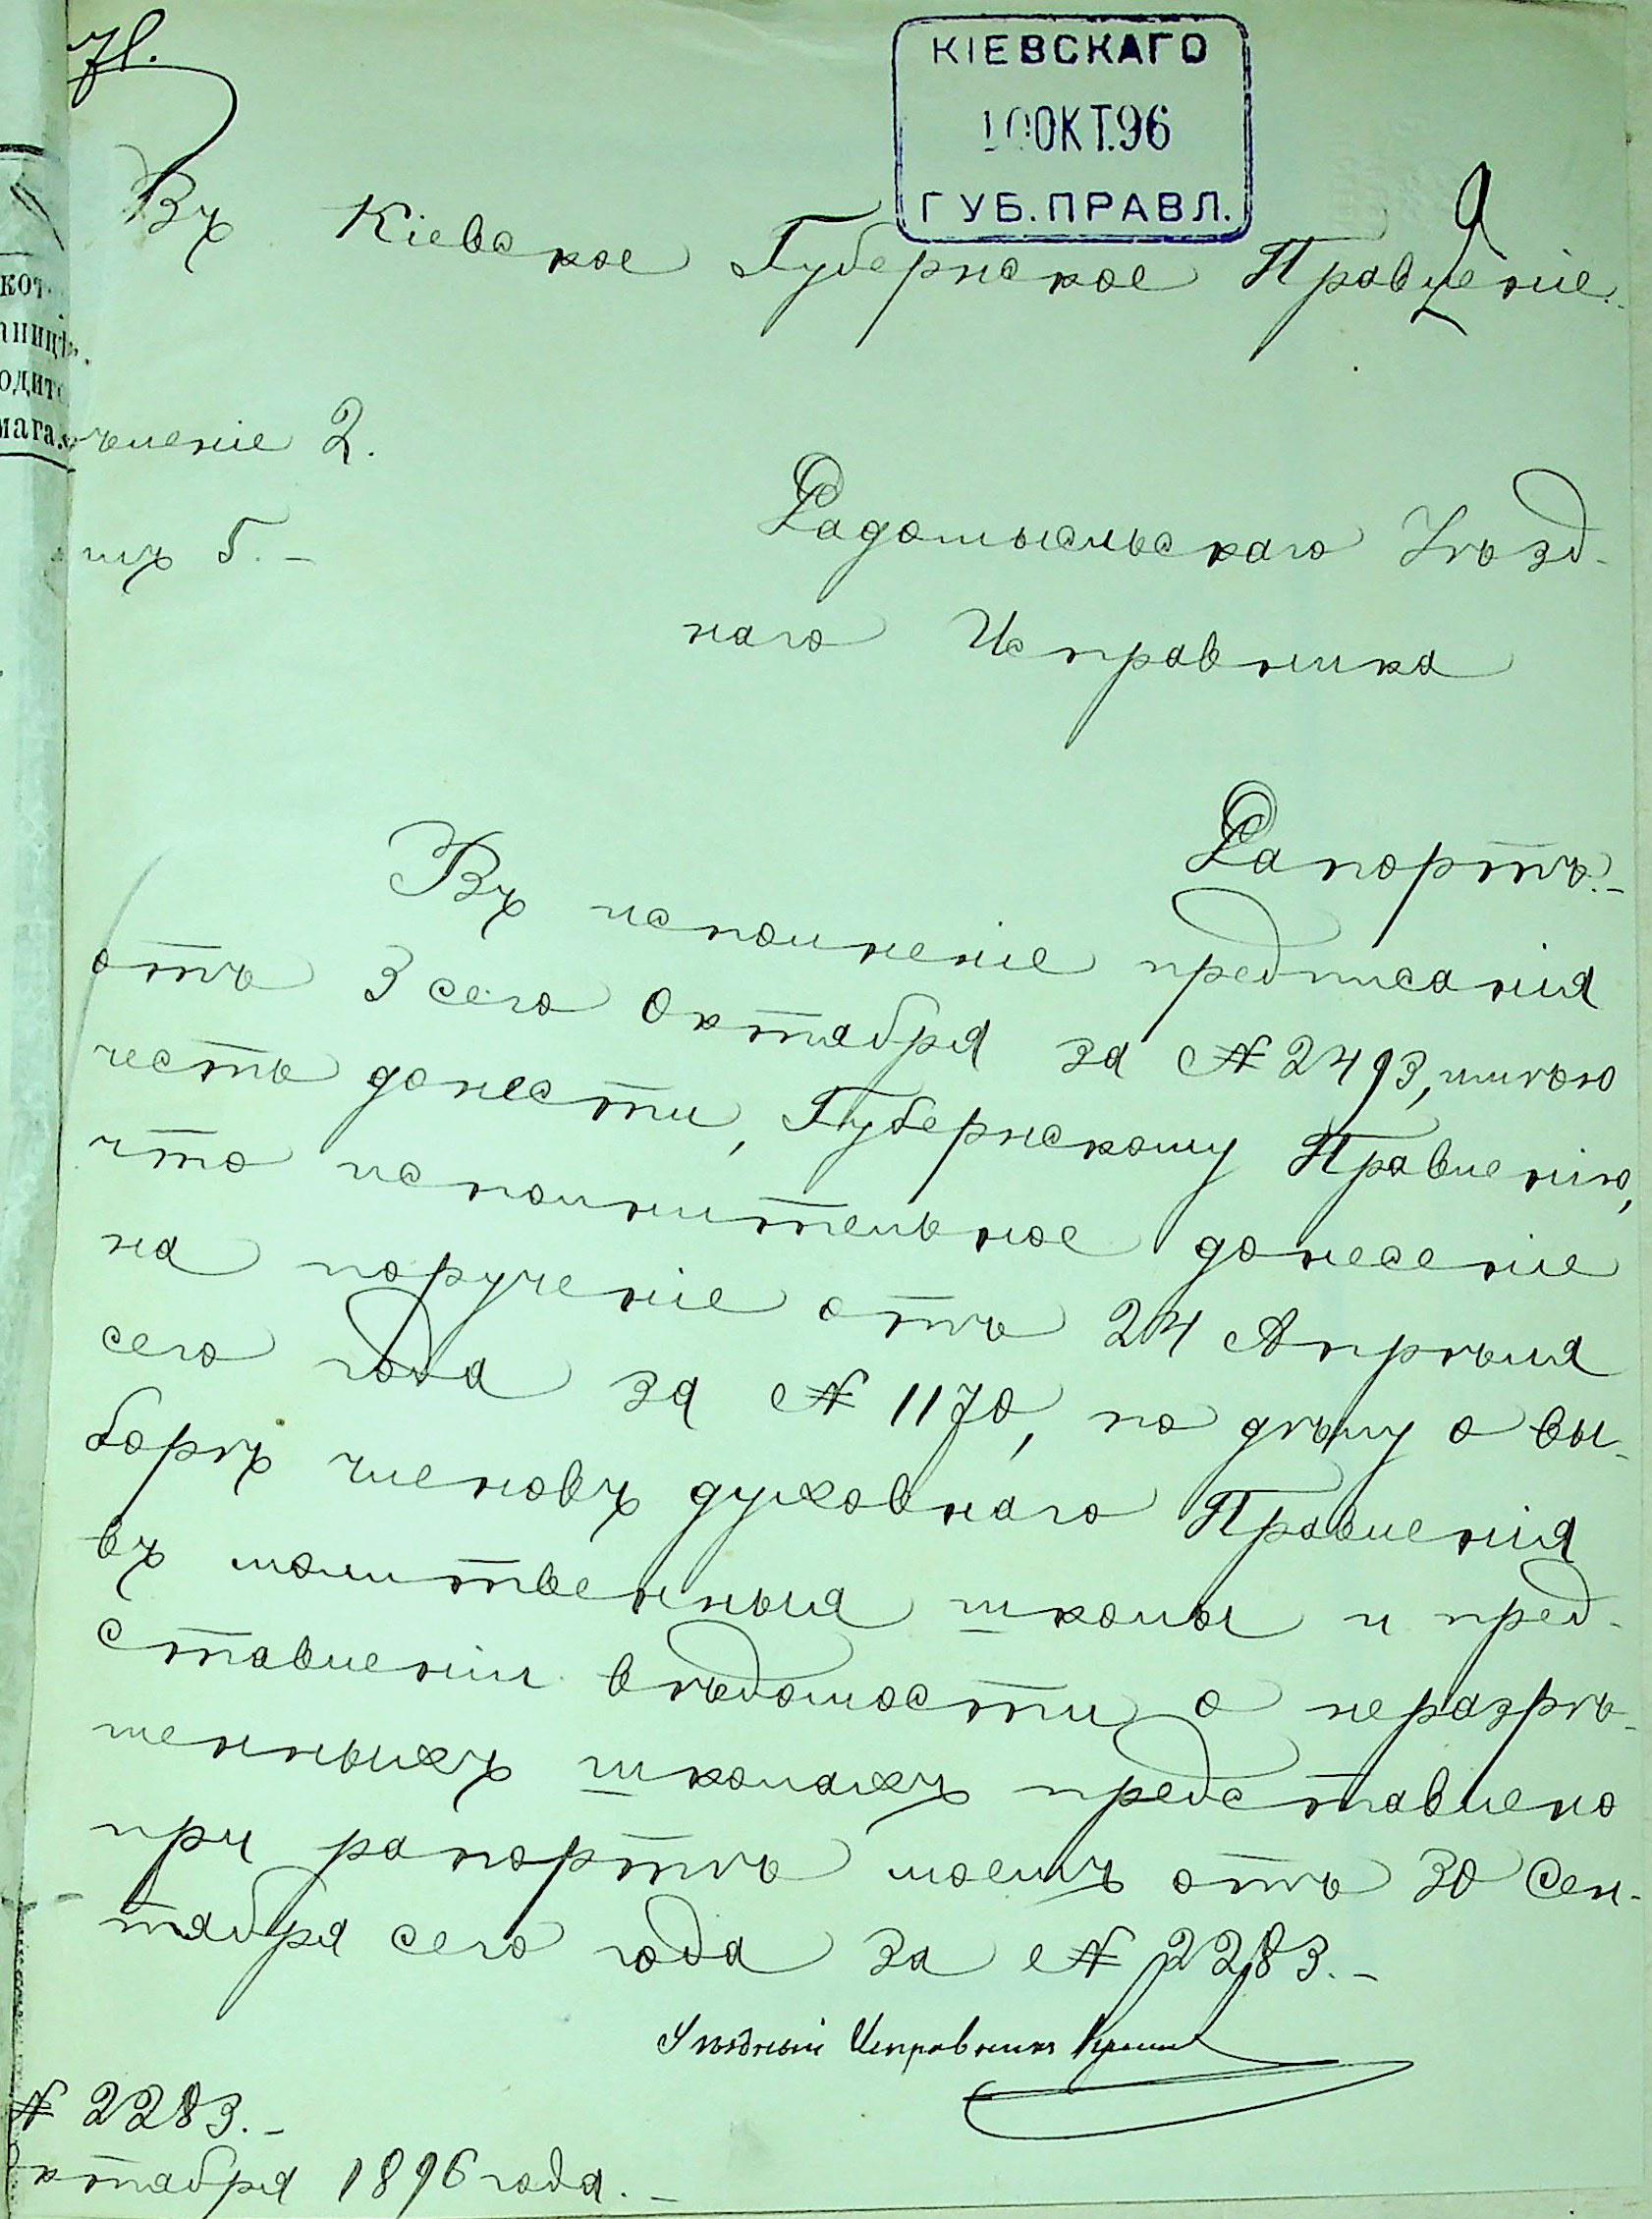 КІЕВСКАГО
10 ОКТ.96
ГУБ.ПРАВЛ.
9
Въ Кіевское Губернское Правленіе.
кот
ниць
одит
мага.
ѣленіе 2.
лъ 5.-
Радомысльскаго Уѣзд-
наго Исправника
Рапортъ.-
Въ исполненіе предписанія
отъ 3 сего Октября за № 2493, имѣю
честь донести, Губернскому Правленію,
что исполнительное донесеніе
на порученіе отъ 24 Апрѣля
сего года за № 1170, по дѣлу о вы-
борѣ членовъ духовнаго Правленія
въ молитвенныя школы и пред-
ставленіи вѣдомости о неразрѣ-
шенныхъ школахъ представлено
при рапортѣ моемъ отъ 30 Сен-
тября сего года за № 2283.-
Уѣздный Исправникъ
№ 2283.-
Октября 1896 года.-